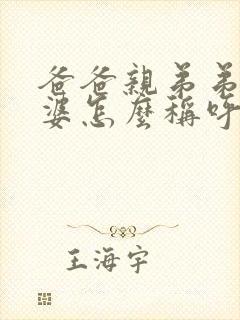 爸爸親弟弟
婆怎麼稱呼
王海宇